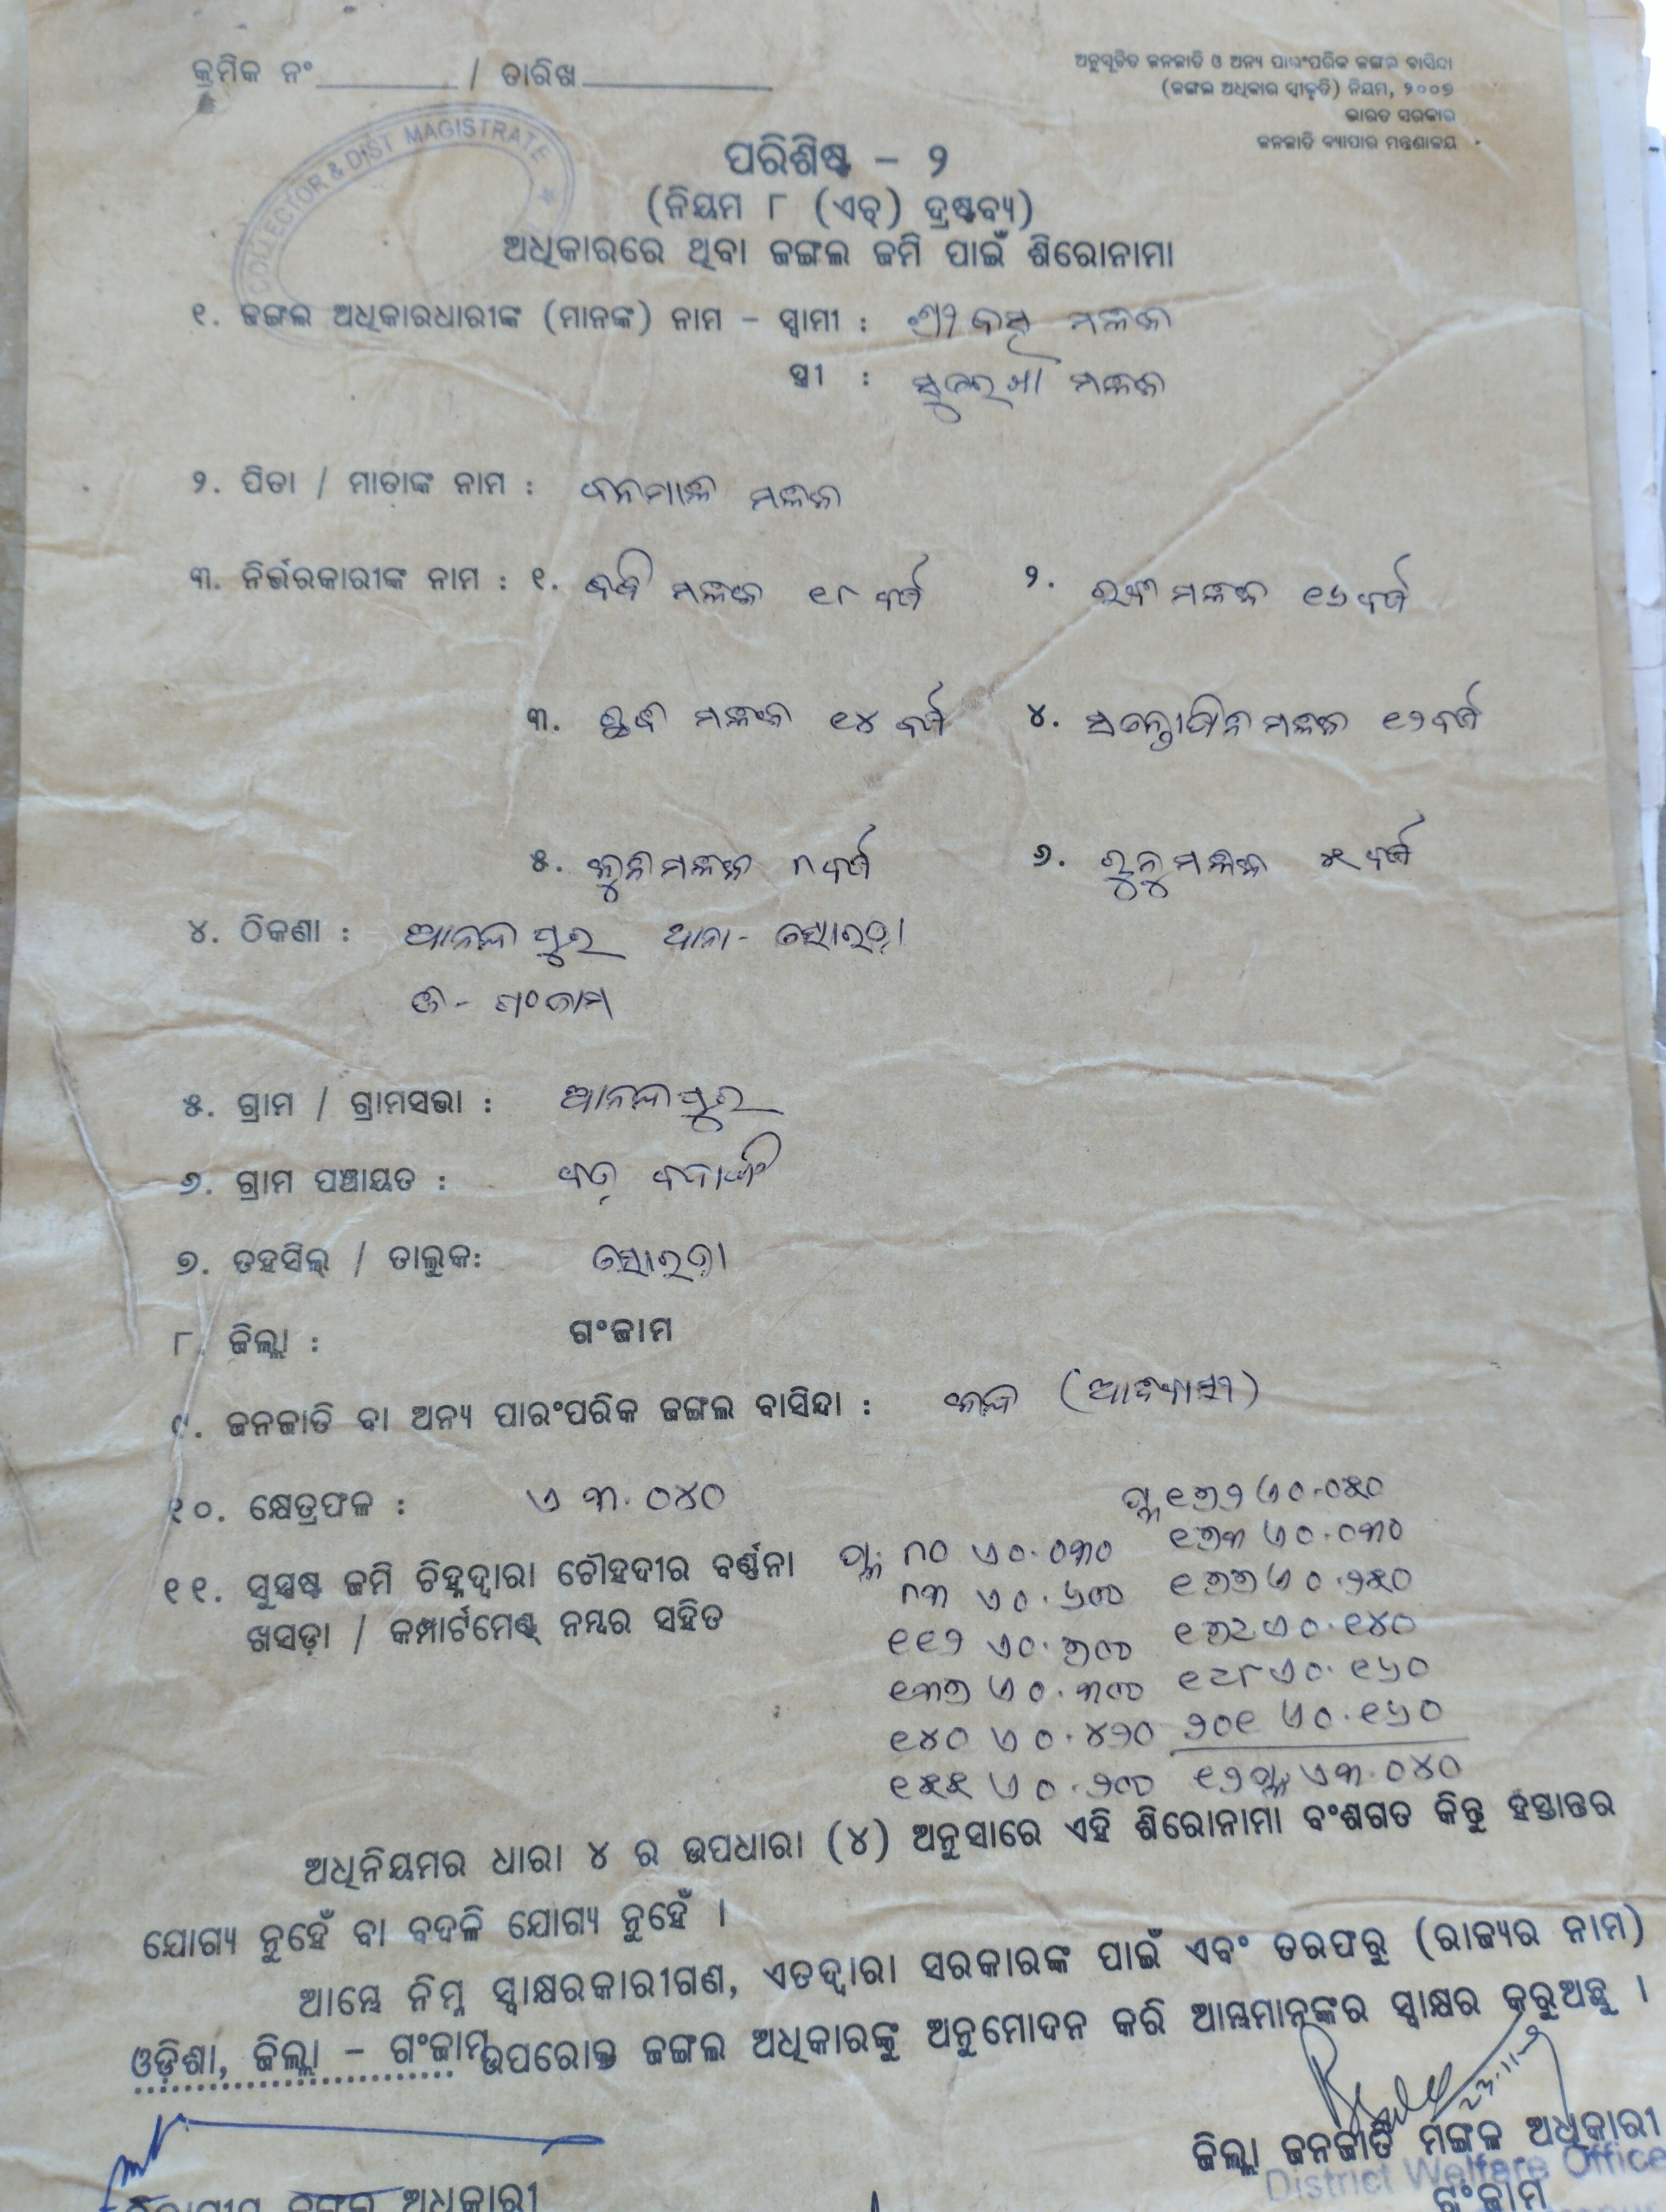 କ୍ରମିକ ନଂ / ତାରିଖ
ଅନୁସୂଚିତ ଜନଜାତି ଓ ଅନ୍ୟ ପାରଂପରିକ ଜଙ୍ଗଲ ବାସିନ୍ଦା
(ଜଙ୍ଗଲ ଅଧିକାର ସ୍ୱୀକୃତି) ନିୟମ, ୨୦୦୭
ଭାରତ ସରକାର
ଜନଜାତି ବ୍ୟାପାର ମନ୍ତ୍ରଣାଳୟ
COLLECTOR & DIST MAGISTRATE
ପରିଶିଷ୍ଟ – ୨
(ନିୟମ ୮ (ଏଚ୍) ଦ୍ରଷ୍ଟବ୍ୟ)
ଅଧିକାରରେ ଥିବା ଜଙ୍ଗଲ ଜମି ପାଇଁ ଶିରୋନାମା
୧. ଜଙ୍ଗଲ ଅଧିକାରଧାରୀଙ୍କ (ମାନଙ୍କ) ନାମ – ସ୍ୱାମୀ : ଶ୍ରୀ ମଲ୍ଲିକ
ସ୍ତ୍ରୀ : ମଲ୍ଲିକ
୨. ପିତା / ମାତାଙ୍କ ନାମ : ବନମାଳି ମଲ୍ଲିକ
୩. ନିର୍ଭରକାରୀଙ୍କ ନାମ : ୧. ମଲ୍ଲିକ ୧୮ ବର୍ଷ ୨. ମଲ୍ଲିକ ୧୬ ବର୍ଷ
୩. ମଲ୍ଲିକ ୧୪ ବର୍ଷ ୪. ମଲ୍ଲିକ ୧୨ ବର୍ଷ
୫. କୁନି ମଲ୍ଲିକ ୮ ବର୍ଷ ୬. ମଲ୍ଲିକ ୫ ବର୍ଷ
୪. ଠିକଣା : ଆନନ୍ଦପୁର ଥାନା- ସୋରଡ଼ା
ଜି - ଗଂଜାମ
୫. ଗ୍ରାମ / ଗ୍ରାମସଭା : ଆନନ୍ଦପୁର
୬. ଗ୍ରାମ ପଞ୍ଚାୟତ :
୭. ତହସିଲ୍ / ତାଲୁକ: ସୋରଡ଼ା
୮. ଜିଲ୍ଲା : ଗଂଜାମ
୯. ଜନଜାତି ବା ଅନ୍ୟ ପାରଂପରିକ ଜଙ୍ଗଲ ବାସିନ୍ଦା : କନ୍ଧ (ଆଦିବାସୀ)
୧୦. କ୍ଷେତ୍ରଫଳ : ଏ ୩.୦୪୦
୧୧. ସୁସ୍ପଷ୍ଟ ଜମି ଚିହ୍ନଦ୍ୱାରା ଚୌହଦୀର ବର୍ଣ୍ଣନା
ଖସଡ଼ା / କମ୍ପାର୍ଟମେଣ୍ଟ୍ ନମ୍ବର ସହିତ
ପ୍ଲ ୮୦ ଏ ୦.୦୩୦
୮୩ ଏ ୦.୬୦୦
୧୧୨ ଏ ୦.୭୦୦
୧୩୭ ଏ ୦.୩୦୦
୧୪୦ ଏ ୦.୪୨୦
୧୫୫ ଏ ୦.୨୦୦
ପ୍ଲ ୧୭୨ ଏ ୦.୦୫୦
୧୭୩ ଏ ୦.୦୩୦
୧୭୭ ଏ ୦.୨୫୦
୧୭୯ ଏ ୦.୧୪୦
୧୯୮ ଏ ୦.୧୬୦
୨୦୧ ଏ ୦.୧୬୦
୧୨ ପ୍ଲ ଏ ୩.୦୪୦
ଅଧିନିୟମର ଧାରା ୪ ର ଉପଧାରା (୪) ଅନୁସାରେ ଏହି ଶିରୋନାମା ବଂଶଗତ କିନ୍ତୁ ହସ୍ତାନ୍ତର
ଯୋଗ୍ୟ ନୁହେଁ ବା ବଦଳି ଯୋଗ୍ୟ ନୁହେଁ ।
ଆମ୍ଭେ ନିମ୍ନ ସ୍ୱାକ୍ଷରକାରୀଗଣ, ଏତଦ୍ୱାରା ସରକାରଙ୍କ ପାଇଁ ଏବଂ ତରଫରୁ (ରାଜ୍ୟର ନାମ)
ଓଡ଼ିଶା, ଜିଲ୍ଲା – ଗଂଜାମ ଉପରୋକ୍ତ ଜଙ୍ଗଲ ଅଧିକାରଙ୍କୁ ଅନୁମୋଦନ କରି ଆମ୍ଭମାନଙ୍କର ସ୍ୱାକ୍ଷର କରୁଅଛୁ ।
ଜିଲ୍ଲା ଜନଜାତି ମଙ୍ଗଳ ଅଧିକାରୀ
District Welfare Office
ଜଙ୍ଗଲ ଅଧିକାରୀ
ଗଂଜାମ